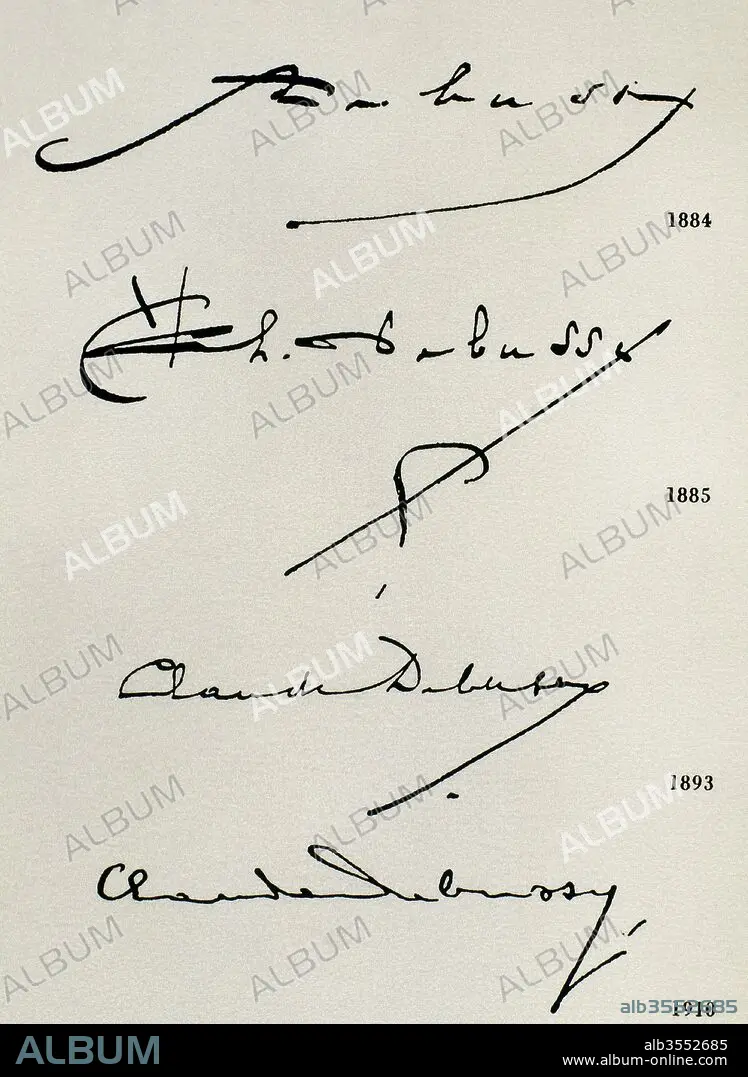 Debussy
1884
Ch. Debussy
1885
Claude Debussy
1893
Claude Debussy
1910
alb3553685
ALBUM
alb3552685
www.album-online.com